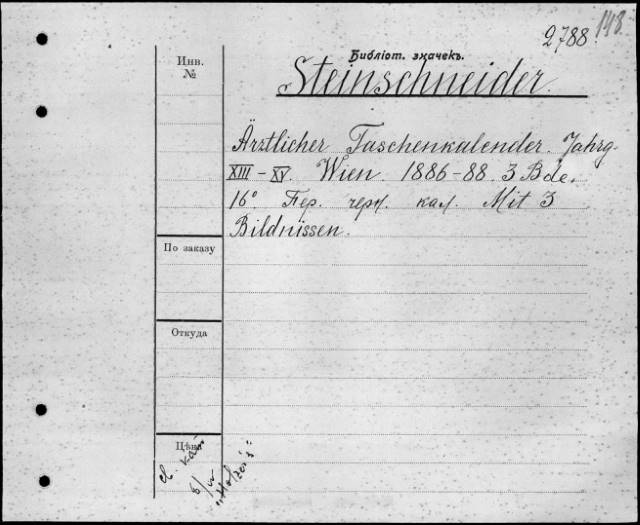 2788 148.
Инв.
№
Библіот. значекъ.
Steinschneider.
Ärztlicher Taschenkalender. Jahrg.
XIII-XV. Wien. 1886-88. 3 Bde.
16° Пер. черн. кал. Mit 3
Bildnissen.
По заказу
Откуда
Цѣна